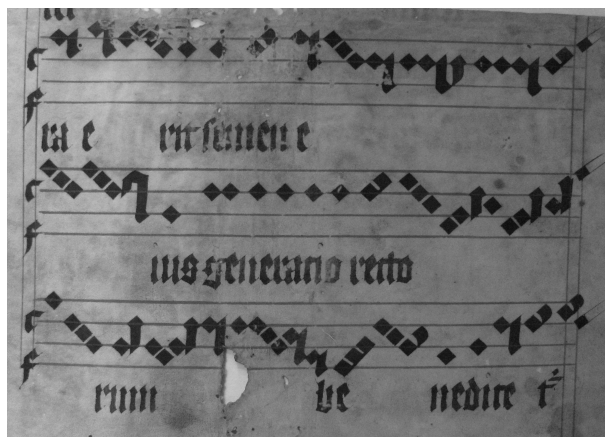 ra e rit semen e
ius generacio recto
rum be nedicet᷑